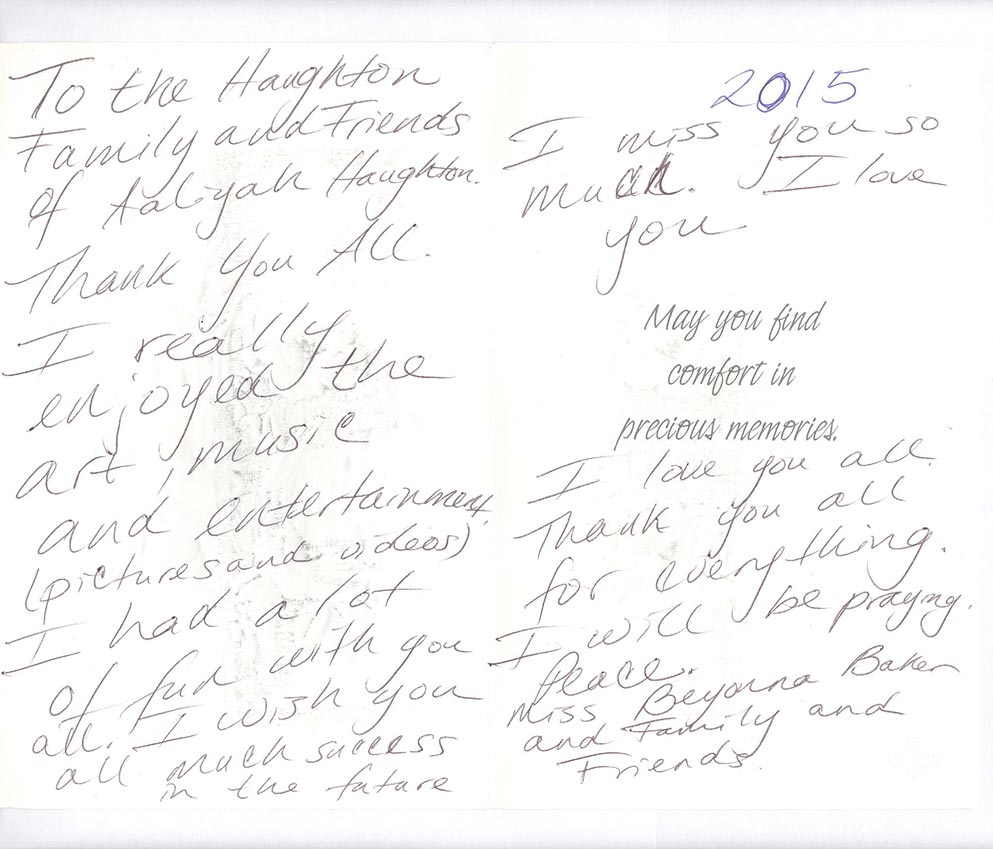 To the Haughton
Family and Friends
of Aaliyah Haughton.
Thank You All.
I really
enjoyed the
art, music
and entertainment.
(pictures and videos)
I had a lot
of fun with you
all. I wish you
all much success
in the future
2015
I miss you so
much. I love
you
May you find
comfort in
precious memories.
I love you all.
Thank you all
for everything.
I will be praying.
Peace.
Miss Beyonna Baker
and Family and
Friends.